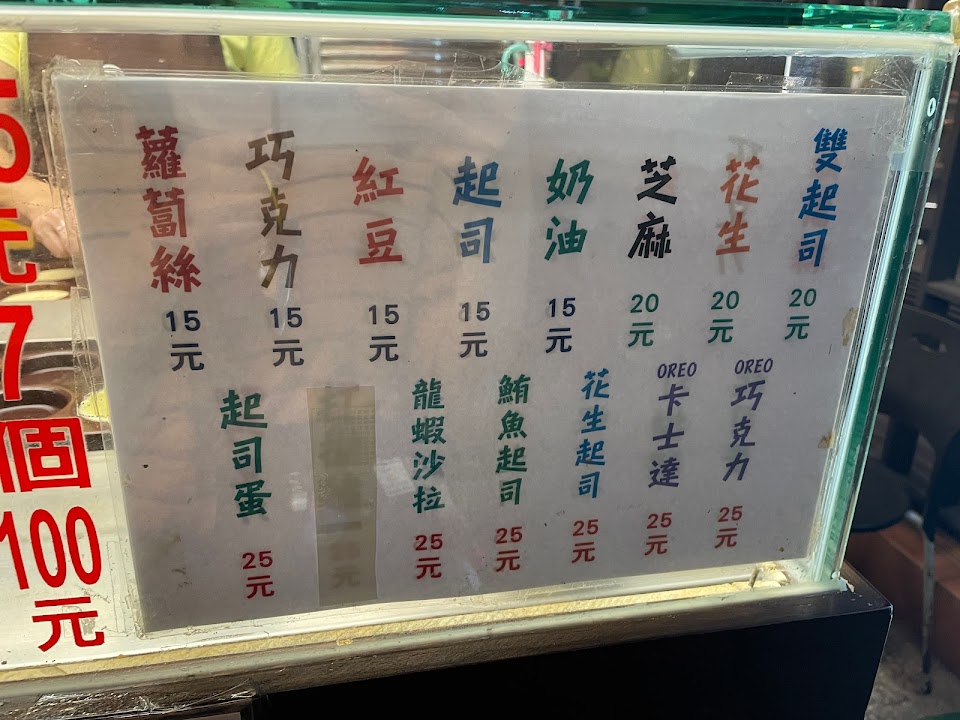 5元
7個
100元
蘿蔔絲
15元
巧克力
15元
紅豆
15元
起司
15元
奶油
15元
芝麻
20元
花生
20元
雙起司
20元
起司蛋
25元
龍蝦沙拉
25元
鮪魚起司
25元
花生起司
25元
OREO
卡士達
25元
OREO
巧克力
25元